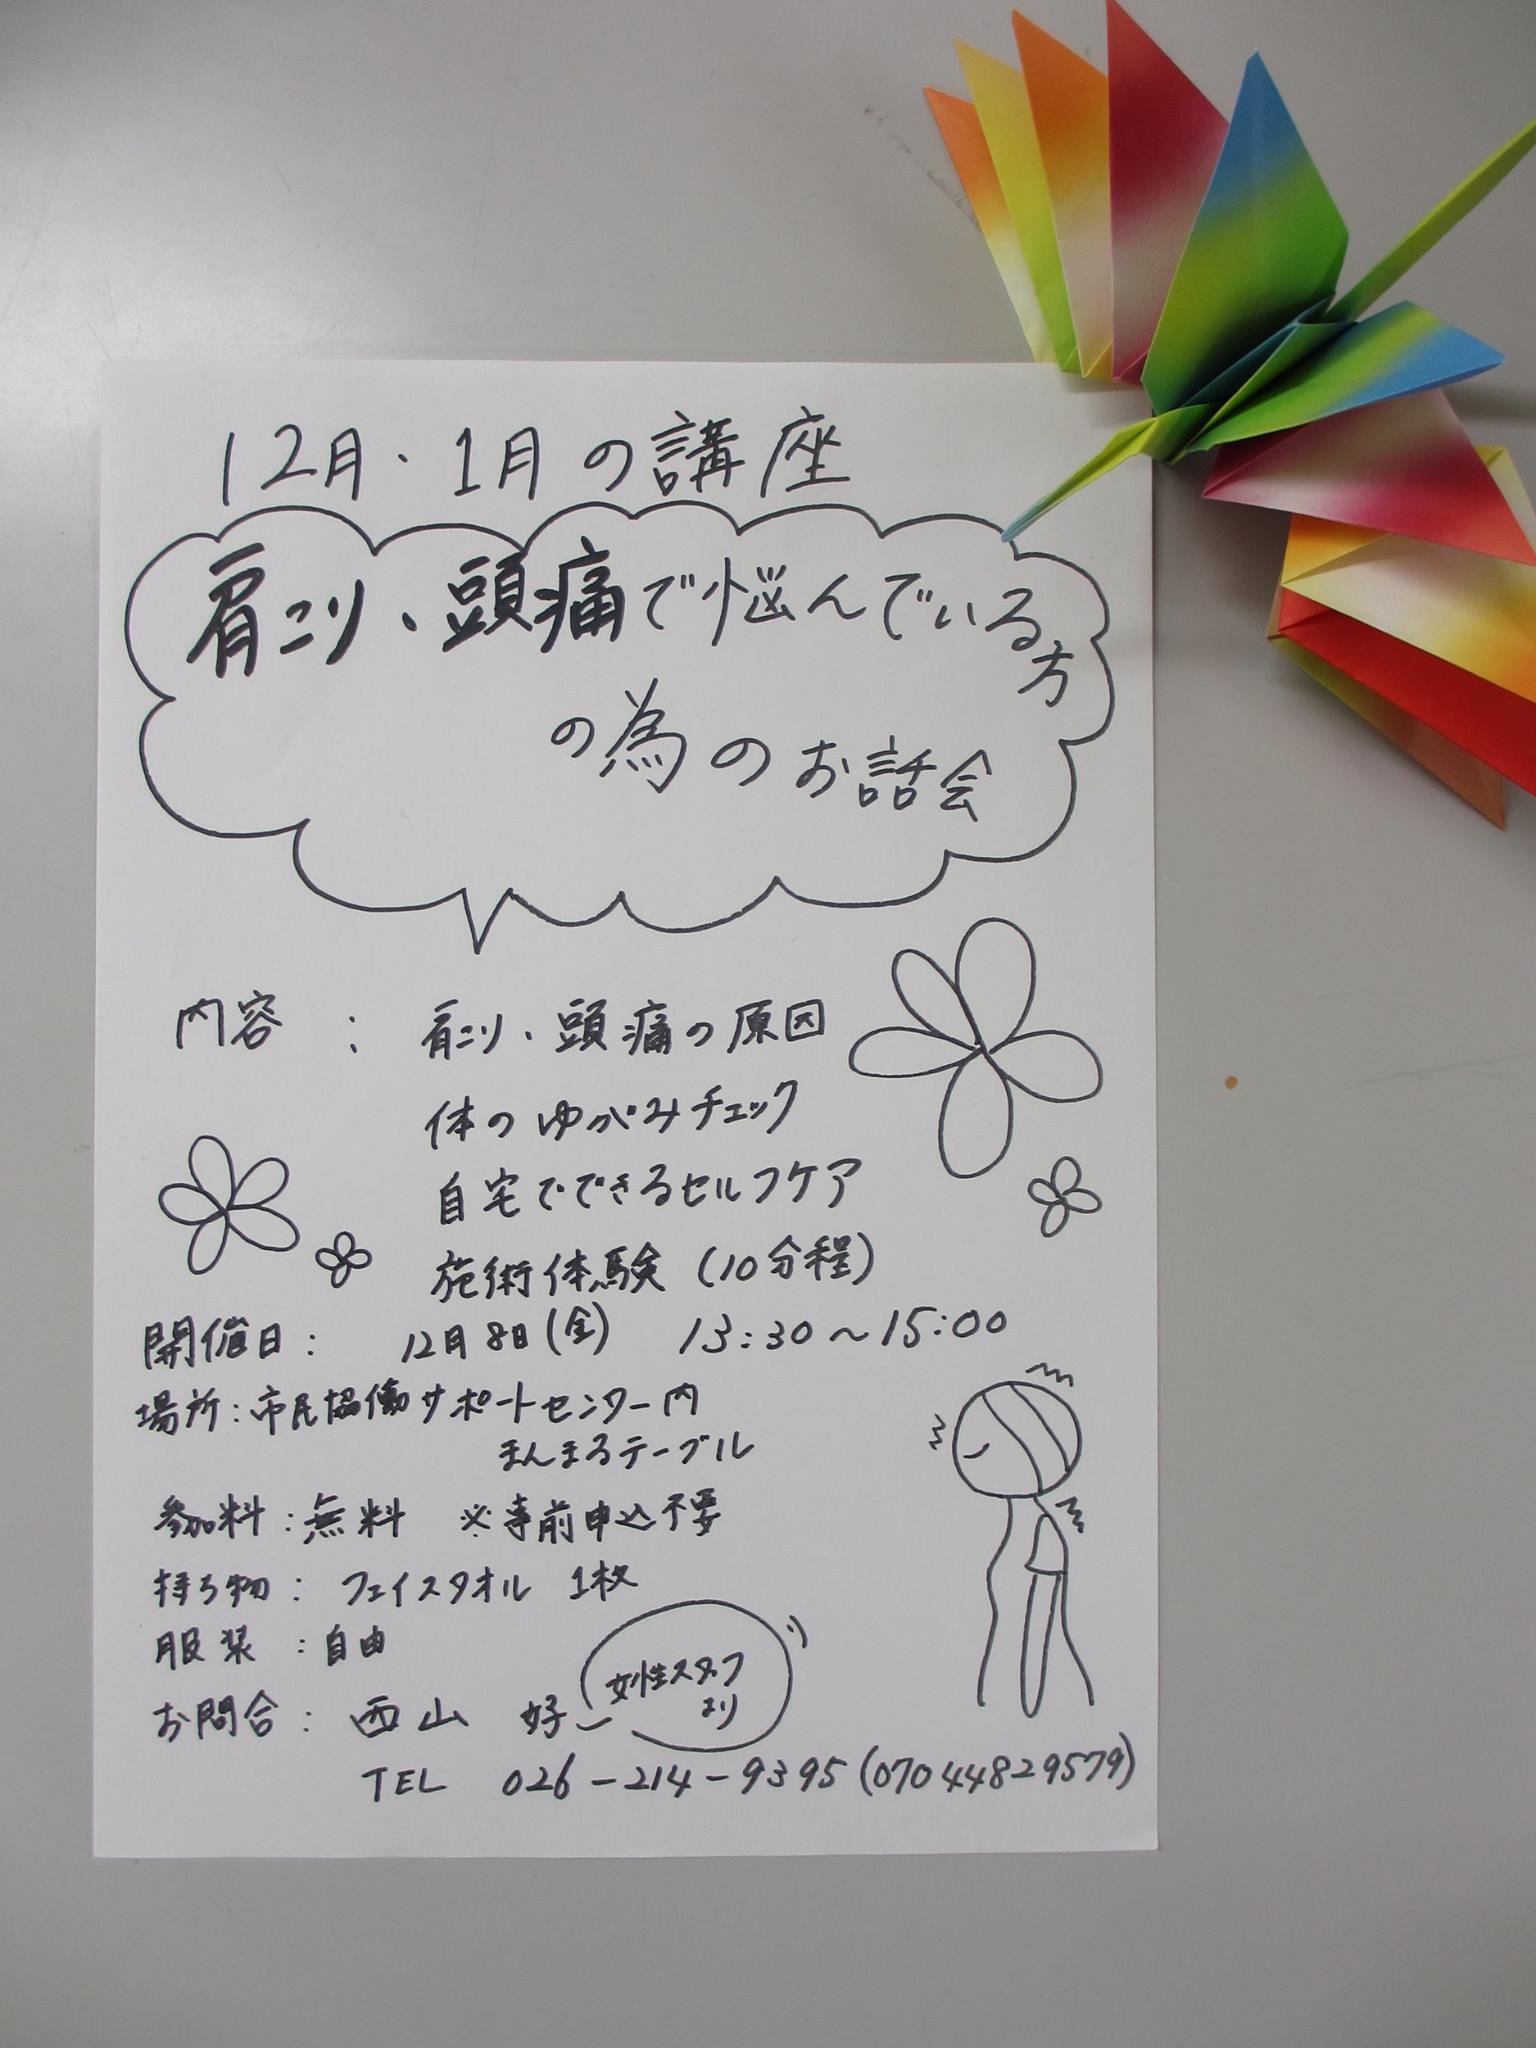 12月・1月の講座
肩こり、頭痛で悩んでいる方
の為のお話会
内容 : 肩こり、頭痛の原因
体のゆがみチェック
自宅でできるセルフケア
施術体験 (10分程)
開催日: 12月8日(金) 13:30〜15:00
場所:市民協働サポートセンター内
まんまるテーブル
参加料:無料 ※事前申込不要
持ち物: フェイスタオル 1枚
服装 : 自由
女性スタッフ
より
お問合: 西山 好
TEL 026-214-9395(07044829579)